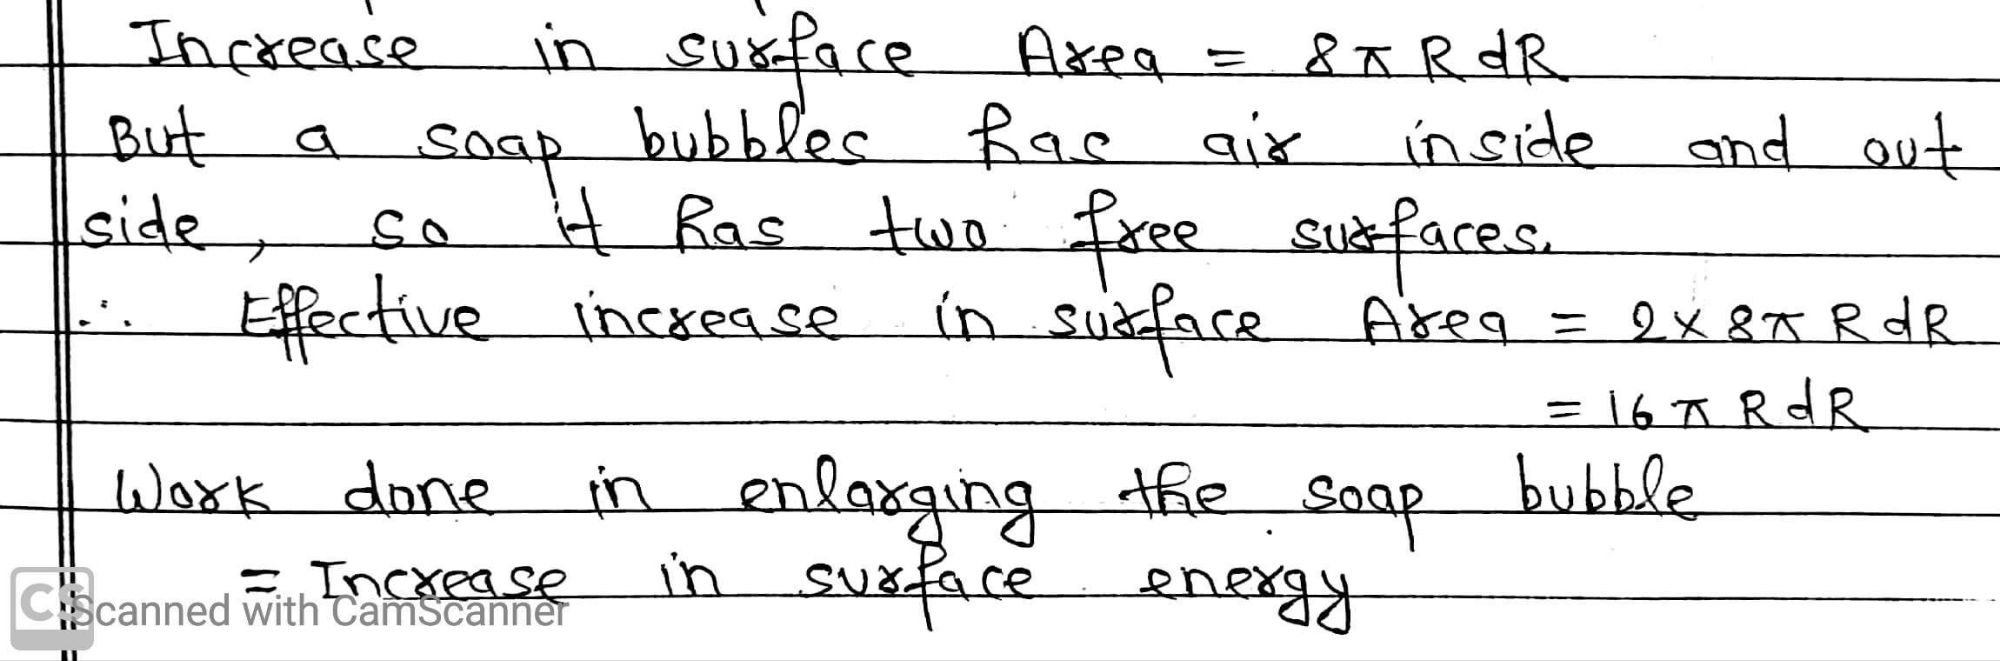 Increase in surface Area = 8π R dR
But a soap bubbles has air inside and out
side, so it has two free surfaces.
∴ Effective increase in surface Area = 2 × 8π R dR
= 16 π R dR
Work done in enlarging the soap bubble
= Increase in surface energy
CS Scanned with CamScanner